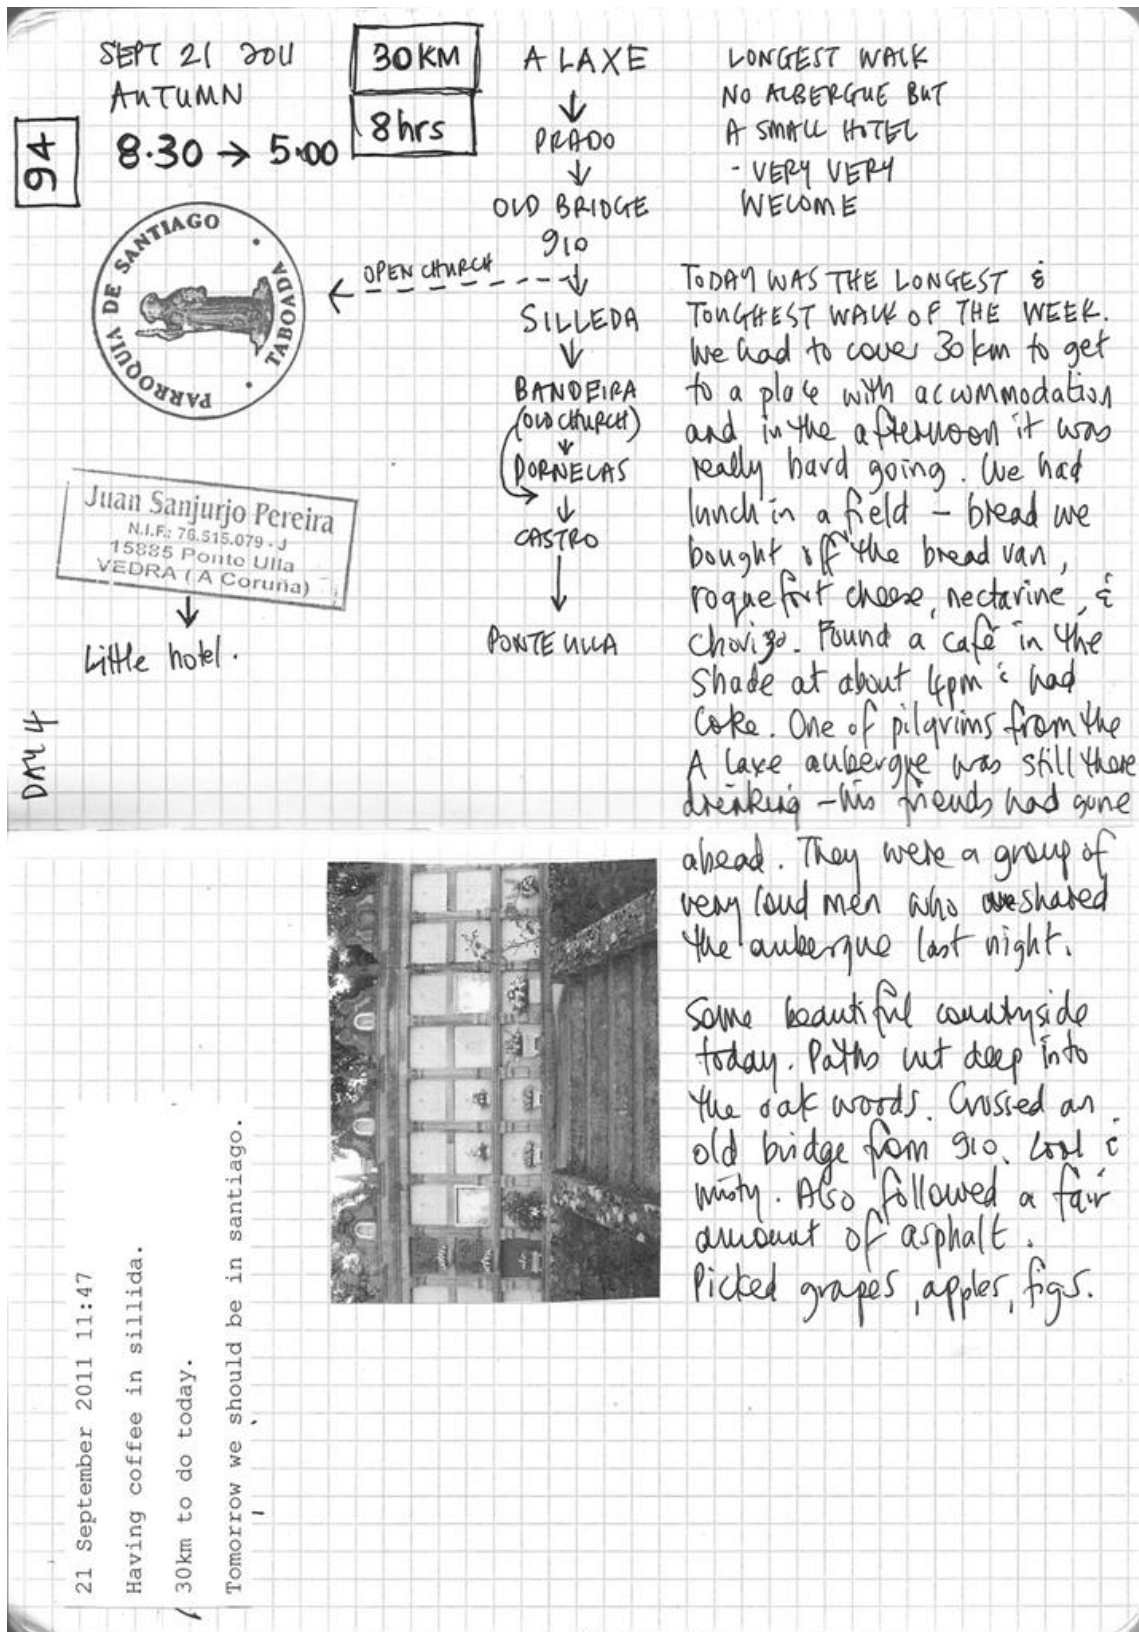 SEPT 21 2011
AUTUMN
8.30 → 5.00
94
30KM
8hrs
A LAXE
↓
PRADO
↓
OLD BRIDGE
910
↓
OPEN CHURCH
SILLEDA
↓
BANDEIRA
(OLD CHURCH)
↓
DORNELAS
↓
CASTRO
↓
PONTE ULLA
PARROQUIA DE SANTIAGO • TABOADA •
Juan Sanjurjo Pereira
N.I.F.: 76.515.079 - J
15885 Ponte Ulla
VEDRA (A Coruña)
↓
Little hotel.
DAY 4
LONGEST WALK
NO ALBERGUE BUT
A SMALL HOTEL
- VERY VERY
WELOME
TODAY WAS THE LONGEST &
TOUGHEST WALK OF THE WEEK.
We had to cover 30km to get
to a place with accommodation
and in the afternoon it was
really hard going. We had
lunch in a field – bread we
bought off the bread van,
roquefort cheese, nectarine, &
chorizo. Found a café in the
shade at about 4pm & had
Coke. One of pilgrims from the
A Laxe aubergue was still there
drinking – his friends had gone
ahead. They were a group of
very loud men who we shared
the aubergue last night.
Some beautiful countryside
today. Paths cut deep into
the oak woods. Crossed an
old bridge from 910. Cool &
misty. Also followed a fair
amount of asphalt.
Picked grapes, apples, figs.
21 September 2011 11:47
Having coffee in sillida.
30km to do today.
Tomorrow we should be in santiago.